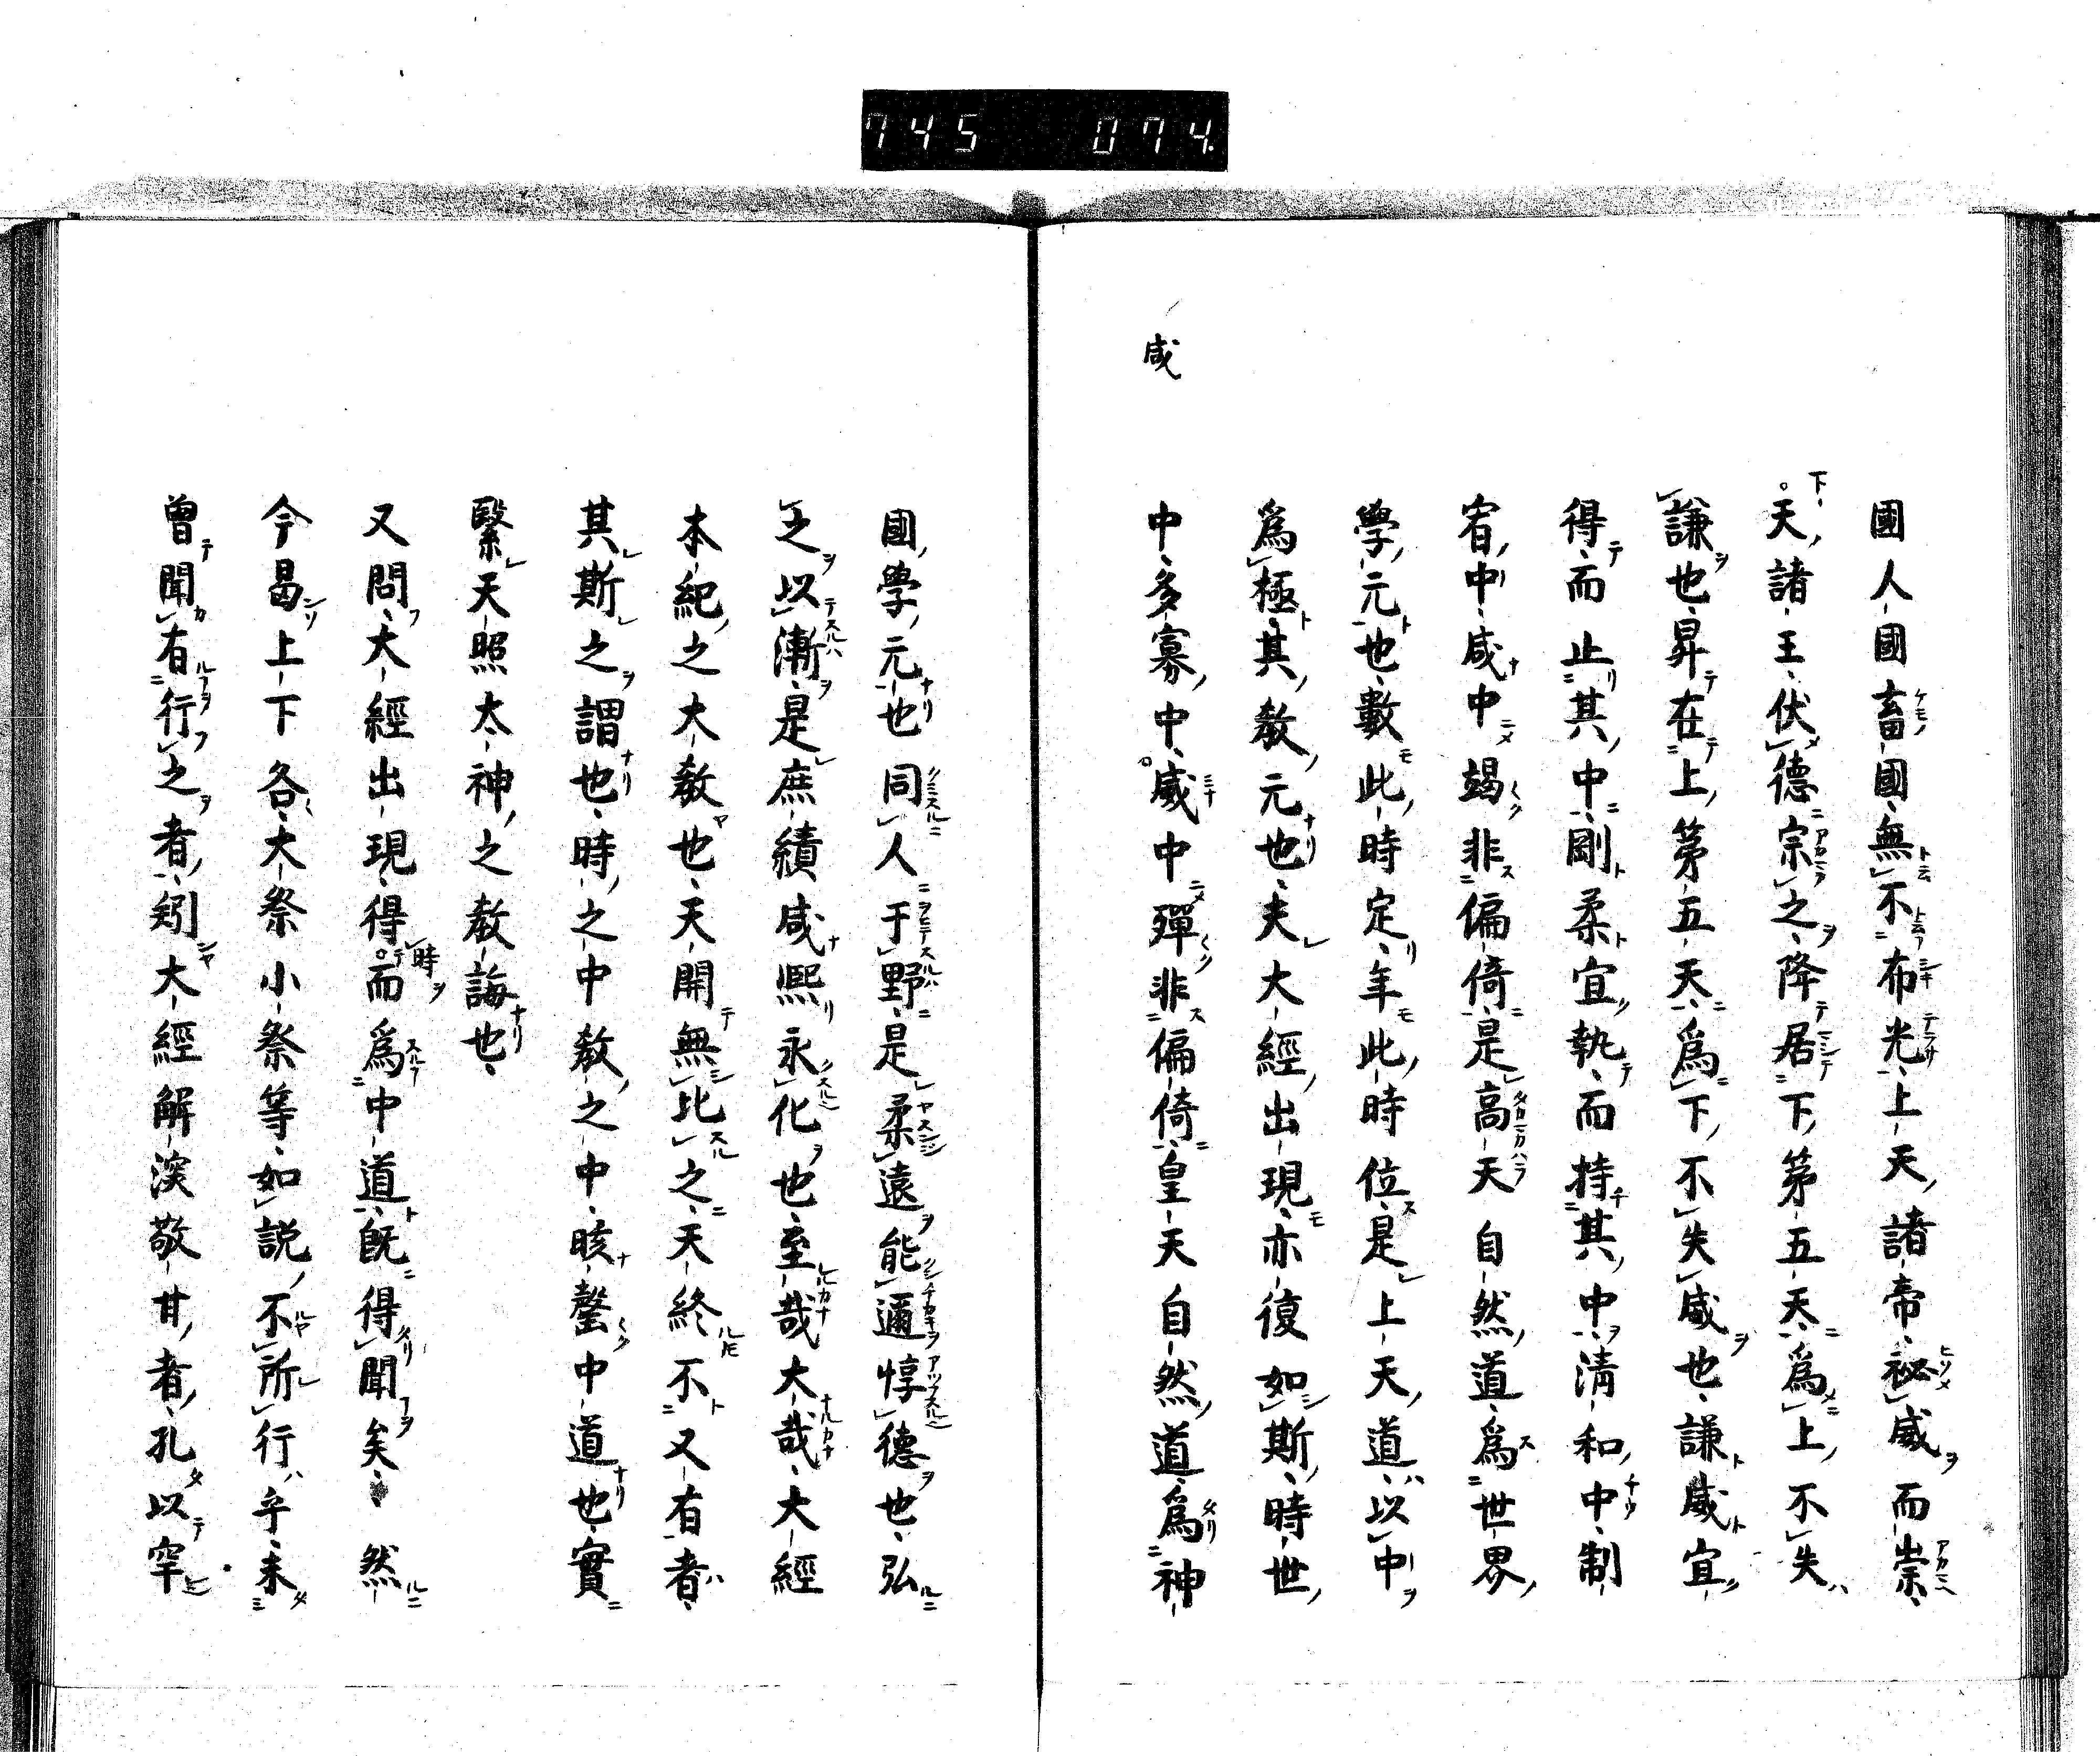 745 074.
國人國畜國無不布光上天諸帝祕威而崇
下天諸王伏德宗之降居下苐五天爲上不失
謙也昇在上苐五天爲下不失威也謙威宜
得而止其中剛柔宜執而持其中淸和中制
宥中咸中竭非偏倚是高天自然道爲世界
學元也數此時定年此時位是上天道以中
爲極其敎元也夫大經出現亦復如斯時世
咸
中多寡中咸中殫非偏倚皇天自然道爲神
國學元也同人于野是柔遠能邇惇德也弘
之以漸是庶績咸熙永化也至哉大哉大經
本紀之大敎也天開無比之天終不又有者
其斯之謂也時之中敎之中晐罄中道也實
緊天照太神之敎誨也
又問大經出現得時而爲中道既得聞矣然
今曷上下各大祭小祭等如説不所行乎未
曾聞有行之者矧大經解深敬甘者孔以罕